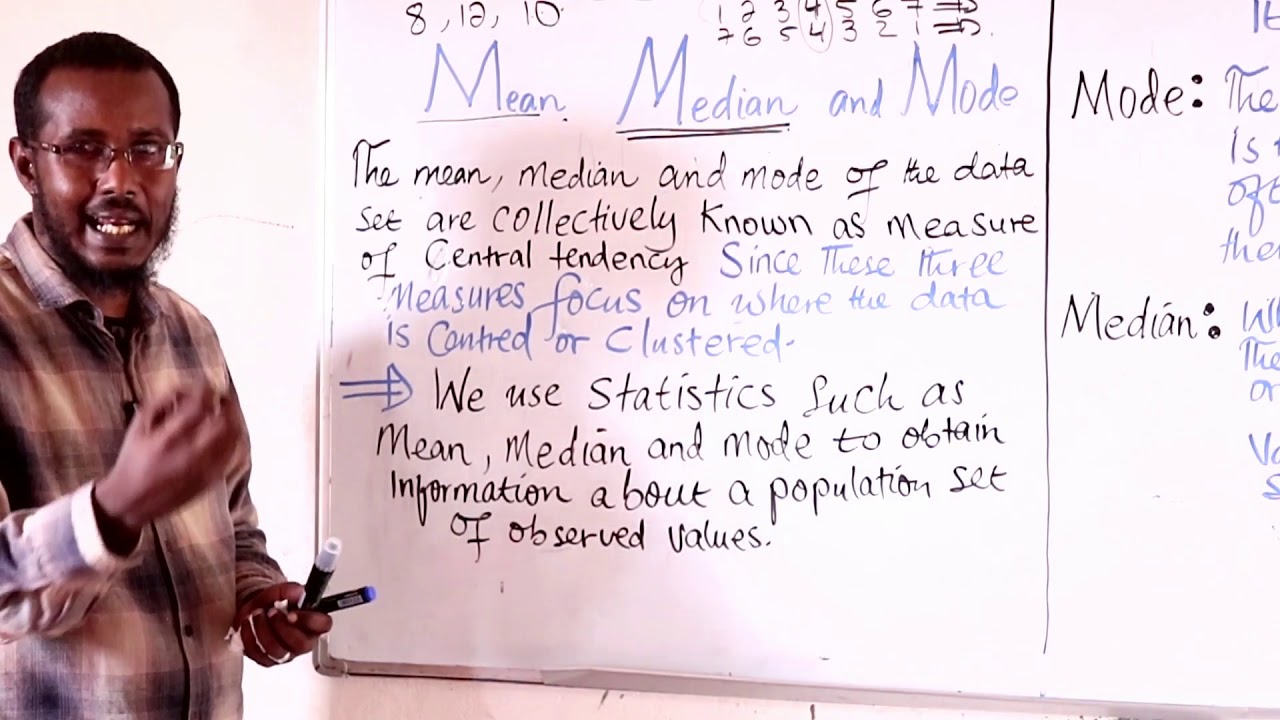 8, 12, 10
1 2 3 4 5 6 7
7 6 5 4 3 2 1
Mean Median and Mode
The mean, median and mode of the data
set are collectively known as measure
of Central tendency Since These three
measures focus on where the data
is Contred or Clustered.
⇒ We use Statistics Such as
Mean, Median and Mode to obtain
Information about a population set
of observed values.
It
Mode: The
Is
of
the
Median:
The
or
Va
S